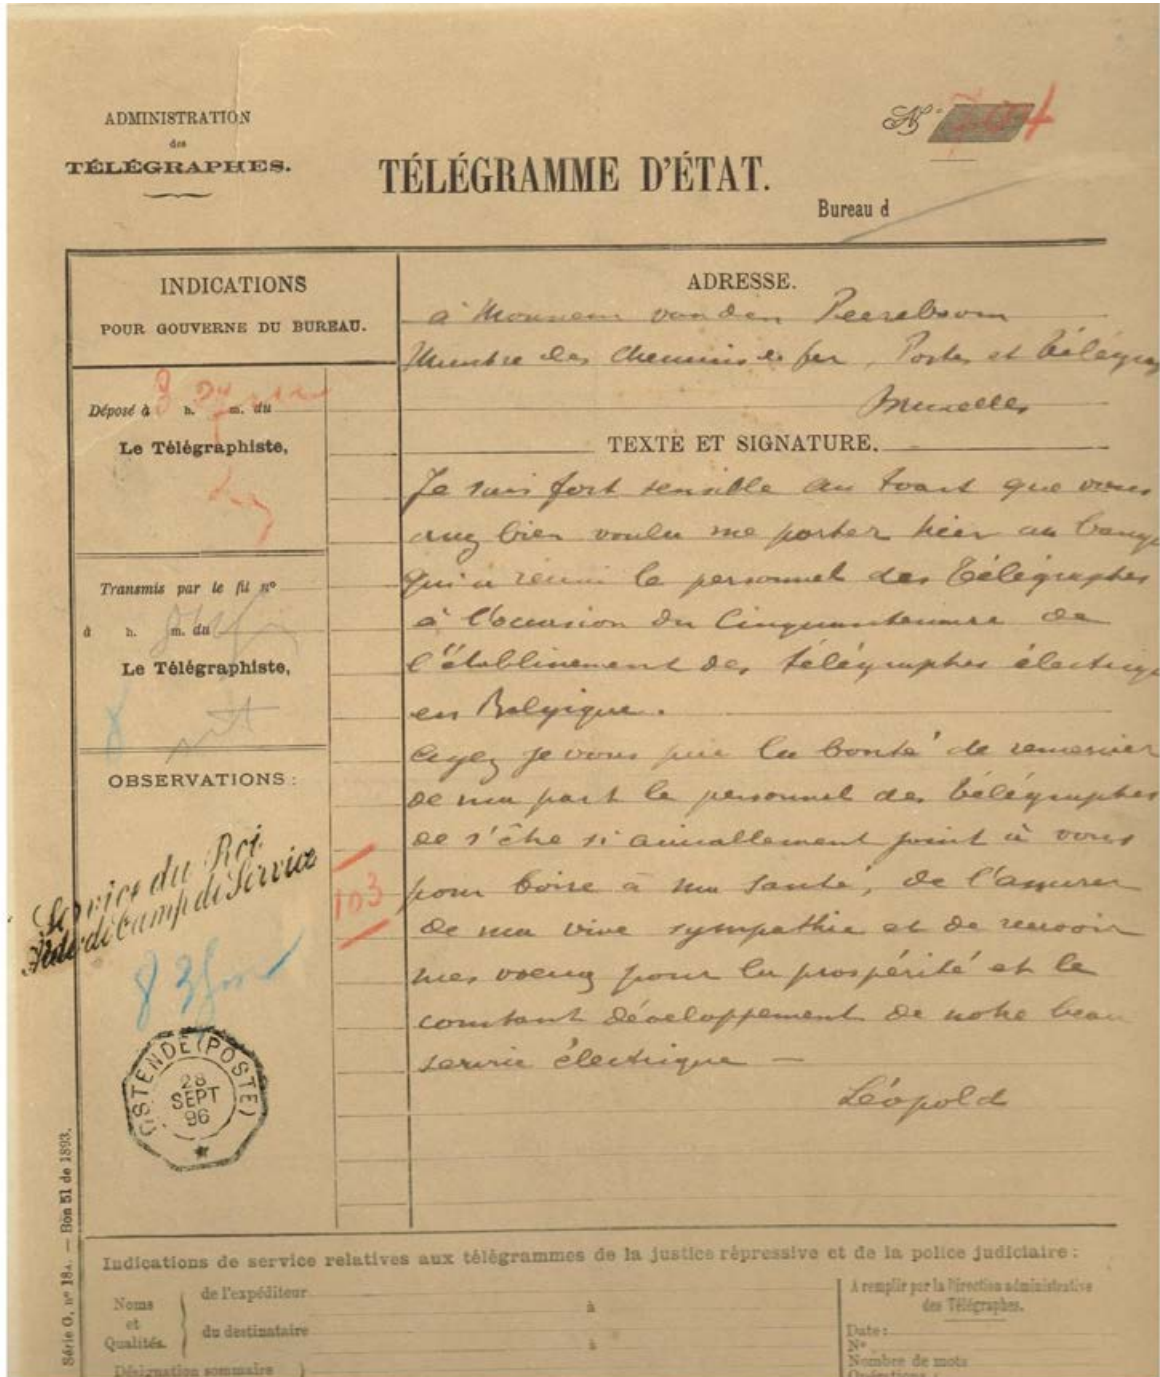 ADMINISTRATION
des
TÉLÉGRAPHES.
N°
TÉLÉGRAMME D'ÉTAT.
Bureau d
INDICATIONS
POUR GOUVERNE DU BUREAU.
Déposé à h. m. du
Le Télégraphiste,
Transmis par le fil n°
à h. m. du
Le Télégraphiste,
OBSERVATIONS :
Service du Roi
Aide de Camp de Service
103
OSTENDE (POSTE)
28
SEPT
96
ADRESSE.
à Monsieur vanden Peereboom
Ministre des Chemins de fer, Postes et Télégra
Bruxelles
TEXTE ET SIGNATURE.
Je suis fort sensible au toast que vous
avez bien voulu me porter hier au banqu
qui a réuni le personnel des Télégraphes
à l'occasion du Cinquantenaire de
l'établissement des télégraphes électriqu
en Belgique.
Ayez je vous prie la bonté de remercier
de ma part le personnel des télégraphes
de s'être si aimablement joint à vous
pour boire à ma santé, de l'assurer
de ma vive sympathie et de recevoir
mes voeux pour la prospérité et le
constant développement de notre beau
service électrique —
Léopold
Série O, n° 184. — Bon 51 de 1893.
Indications de service relatives aux télégrammes de la justice répressive et de la police judiciaire :
Noms
et
Qualités.
de l'expéditeur à
du destinataire à
Désignation sommaire
A remplir par la Direction administrative
des Télégraphes.
Date :
N°
Nombre de mots